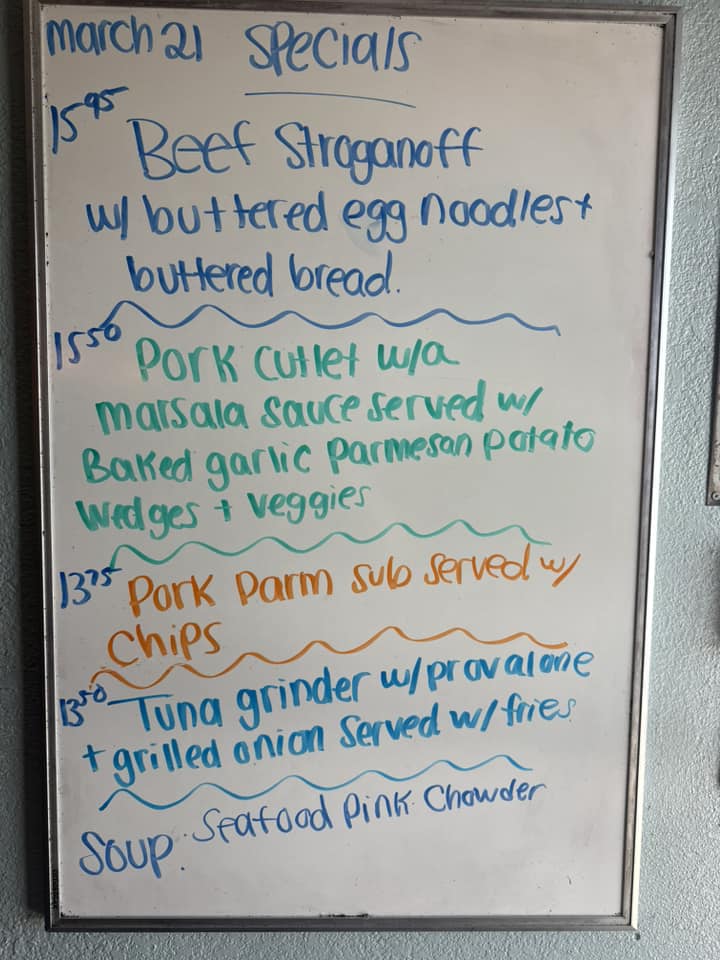 march 21 Specials
15 95
Beef Stroganoff
w/ buttered egg noodles +
buttered bread.
15 50
Pork cutlet w/a
marsala sauce served w/
Baked garlic parmesan potato
wedges + veggies
13 75 Pork Parm sub served w/
Chips
13 50 Tuna grinder w/ provalone
+ grilled onion served w/ fries
Soup. Seafood pink Chowder